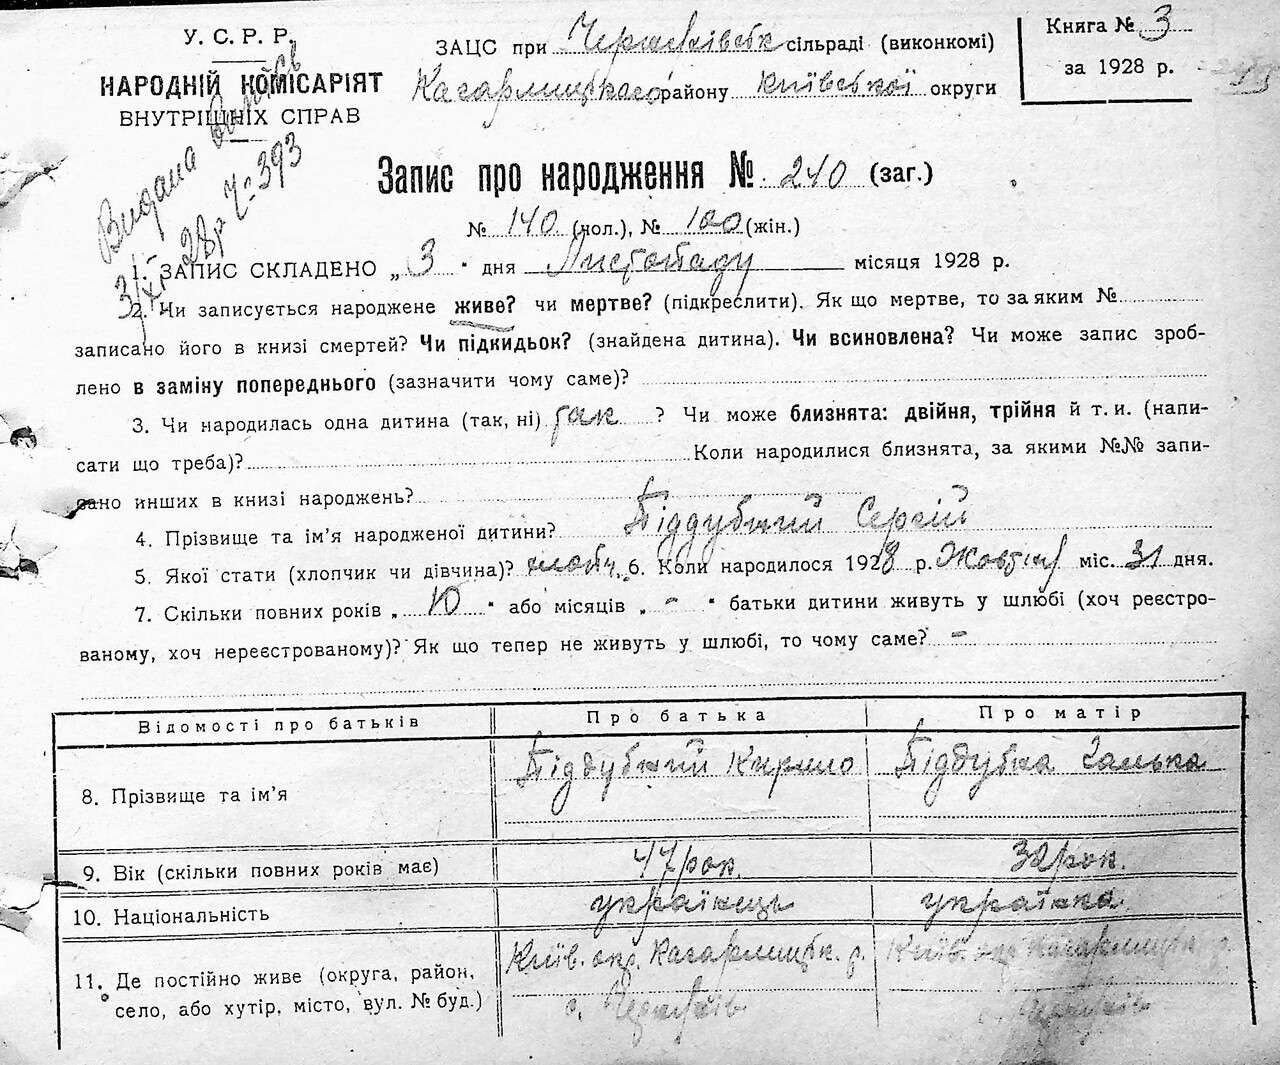 У. С. Р. Р.
НАРОДНІЙ КОМІСАРІЯТ
ВНУТРІШНІХ СПРАВ
Видана
28р Ч: 393
ЗАЦС при сільраді (виконкомі)
Кагарлицького району Київської округи
Книга № 3
за 1928 р.
Запис про народження № 240 (заг.)
№ 140 (чол.), № 100 (жін.)
1. ЗАПИС СКЛАДЕНО „ 3 " дня Листопаду місяця 1928 р.
2. Чи записується народжене живе? чи мертве? (підкреслити). Як що мертве, то за яким №
записано його в книзі смертей? Чи підкидьок? (знайдена дитина). Чи всиновлена? Чи може запис зроб-
лено в заміну попереднього (зазначити чому саме)?
3. Чи народилась одна дитина (так, ні) так ? Чи може близнята: двійня, трійня й т. и. (напи-
сати що треба)? Коли народилися близнята, за якими №№ запи-
сано инших в книзі народжень?
4. Прізвище та ім'я народженої дитини? Піддубний Сергій
5. Якої стати (хлопчик чи дівчина)? хлопч. 6. Коли народилося 1928 р. Жовтня міс. 31 дня.
7. Скільки повних років „ 10 " або місяців „ - " батьки дитини живуть у шлюбі (хоч реєстро-
ваному, хоч нереєстрованому)? Як що тепер не живуть у шлюбі, то чому саме? -
Відомості про батьків Про батька Про матір
8. Прізвище та ім'я Піддубний Кирило Піддубна Ганька
9. Вік (скільки повних років має) 47 рок. рок.
10. Національність українець українка
11. Де постійно живе (округа, район, Київ. окр. Кагарлицьк. р. Київ. окр. Кагарлицьк р.
село, або хутір, місто, вул. № буд.) с. с.